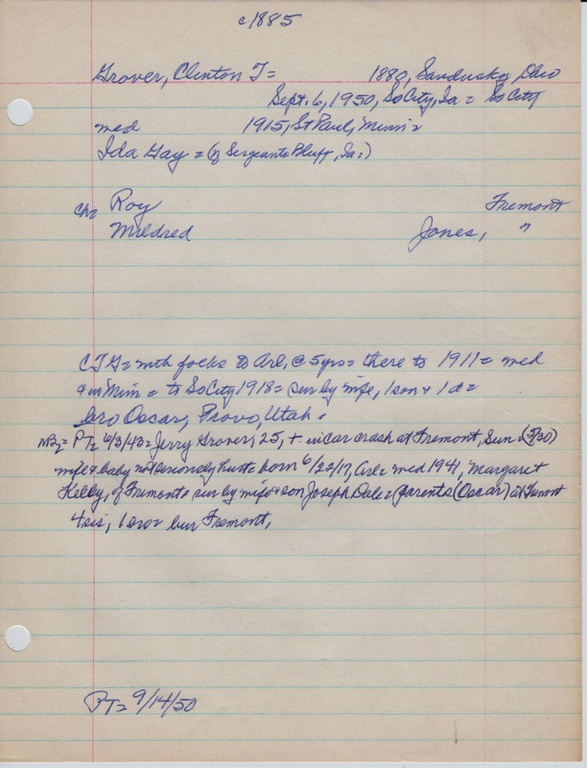 c1885
Grover, Clinton T= 1880, Sandusky, Ohio
Sept. 6, 1950, SoCity, Ia = SoCity
med 1915, St Paul, Minn =
Ida Gay = (of Sergeants Bluff, Ia=)
ch= Roy Fremont
Mildred Jones, "
CTG= with folks to Arl, @ 5yrs= there to 1911= med
& in Minn = to SoCity 1918= sur by wife, 1 son & 1 d=
bro Oscar, Provo, Utah.
NB= PT= 6/3/43= Jerry Grover, 25, + in car crash at Fremont, Sun= (5/30)
wife & baby not seriously hurt= born 6/22/17, Arl= med 1941, Margaret
Kelly, of Fremont= sur by wife & son Joseph Dale= parents (Oscar) at Fremont
4 sis, 1 bro= bur Fremont,
PT= 9/14/50